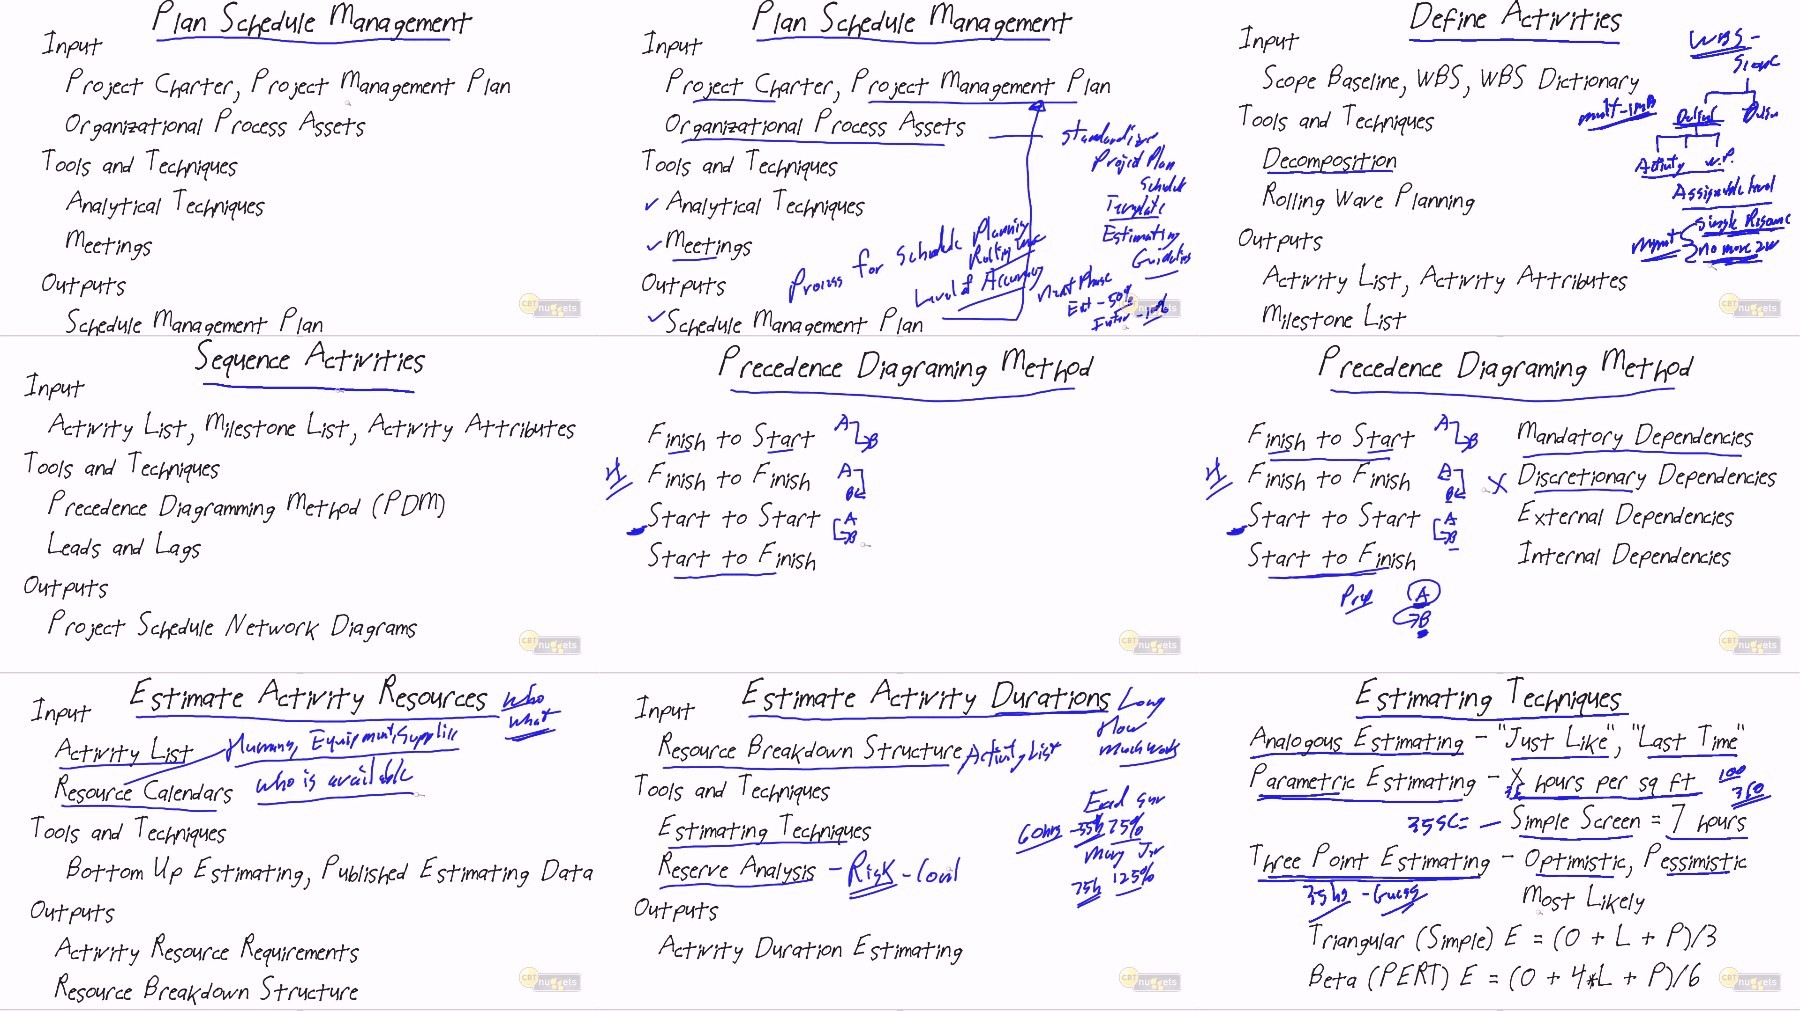 Plan Schedule Management
Input
Project Charter, Project Management Plan
Organizational Process Assets
Tools and Techniques
Analytical Techniques
Meetings
Outputs
Schedule Management Plan
CBT nuggets
Plan Schedule Management
Input
Project Charter, Project Management Plan
Organizational Process Assets
Standardize
Project Plan
Schedule
Template
Estimating
Guidelines
Tools and Techniques
Analytical Techniques
Meetings
Process for Schedule Planning
Level of Accuracy
Next Phase
Est - 50%
Outputs
Schedule Management Plan
CBT nuggets
Define Activities
Input
WBS -
Scope
Scope Baseline, WBS, WBS Dictionary
Tools and Techniques
Decomposition
Activity W.P.
Rolling Wave Planning
Assignable level
Single Resource
Mgmt
no more 2w
Outputs
Activity List, Activity Attributes
Milestone List
CBT nuggets
Sequence Activities
Input
Activity List, Milestone List, Activity Attributes
Tools and Techniques
Precedence Diagramming Method (PDM)
Leads and Lags
Outputs
Project Schedule Network Diagrams
CBT nuggets
Precedence Diagraming Method
Finish to Start A B
Finish to Finish A B
Start to Start A B
Start to Finish
CBT nuggets
Precedence Diagraming Method
Finish to Start A B
Finish to Finish A B
Start to Start A B
Start to Finish
A
B
Mandatory Dependencies
X Discretionary Dependencies
External Dependencies
Internal Dependencies
CBT nuggets
Estimate Activity Resources who
what
Input
Activity List Humans, Equipment, Supplies
Resource Calendars who is available
Tools and Techniques
Bottom Up Estimating, Published Estimating Data
Outputs
Activity Resource Requirements
Resource Breakdown Structure
CBT nuggets
Estimate Activity Durations Long
How
much work
Input
Resource Breakdown Structure Activity List
Tools and Techniques
Estimating Techniques
60hrs - 35h 75%
75h 125%
Reserve Analysis - Risk -
Outputs
Activity Duration Estimating
CBT nuggets
Estimating Techniques
Analogous Estimating - "Just Like", "Last Time"
Parametric Estimating - X hours per sq ft
100
350
35SC = - Simple Screen = 7 hours
Three Point Estimating - Optimistic, Pessimistic
35hs - Guess
Most Likely
Triangular (Simple) E = (O + L + P)/3
Beta (PERT) E = (O + 4*L + P)/6
CBT nuggets